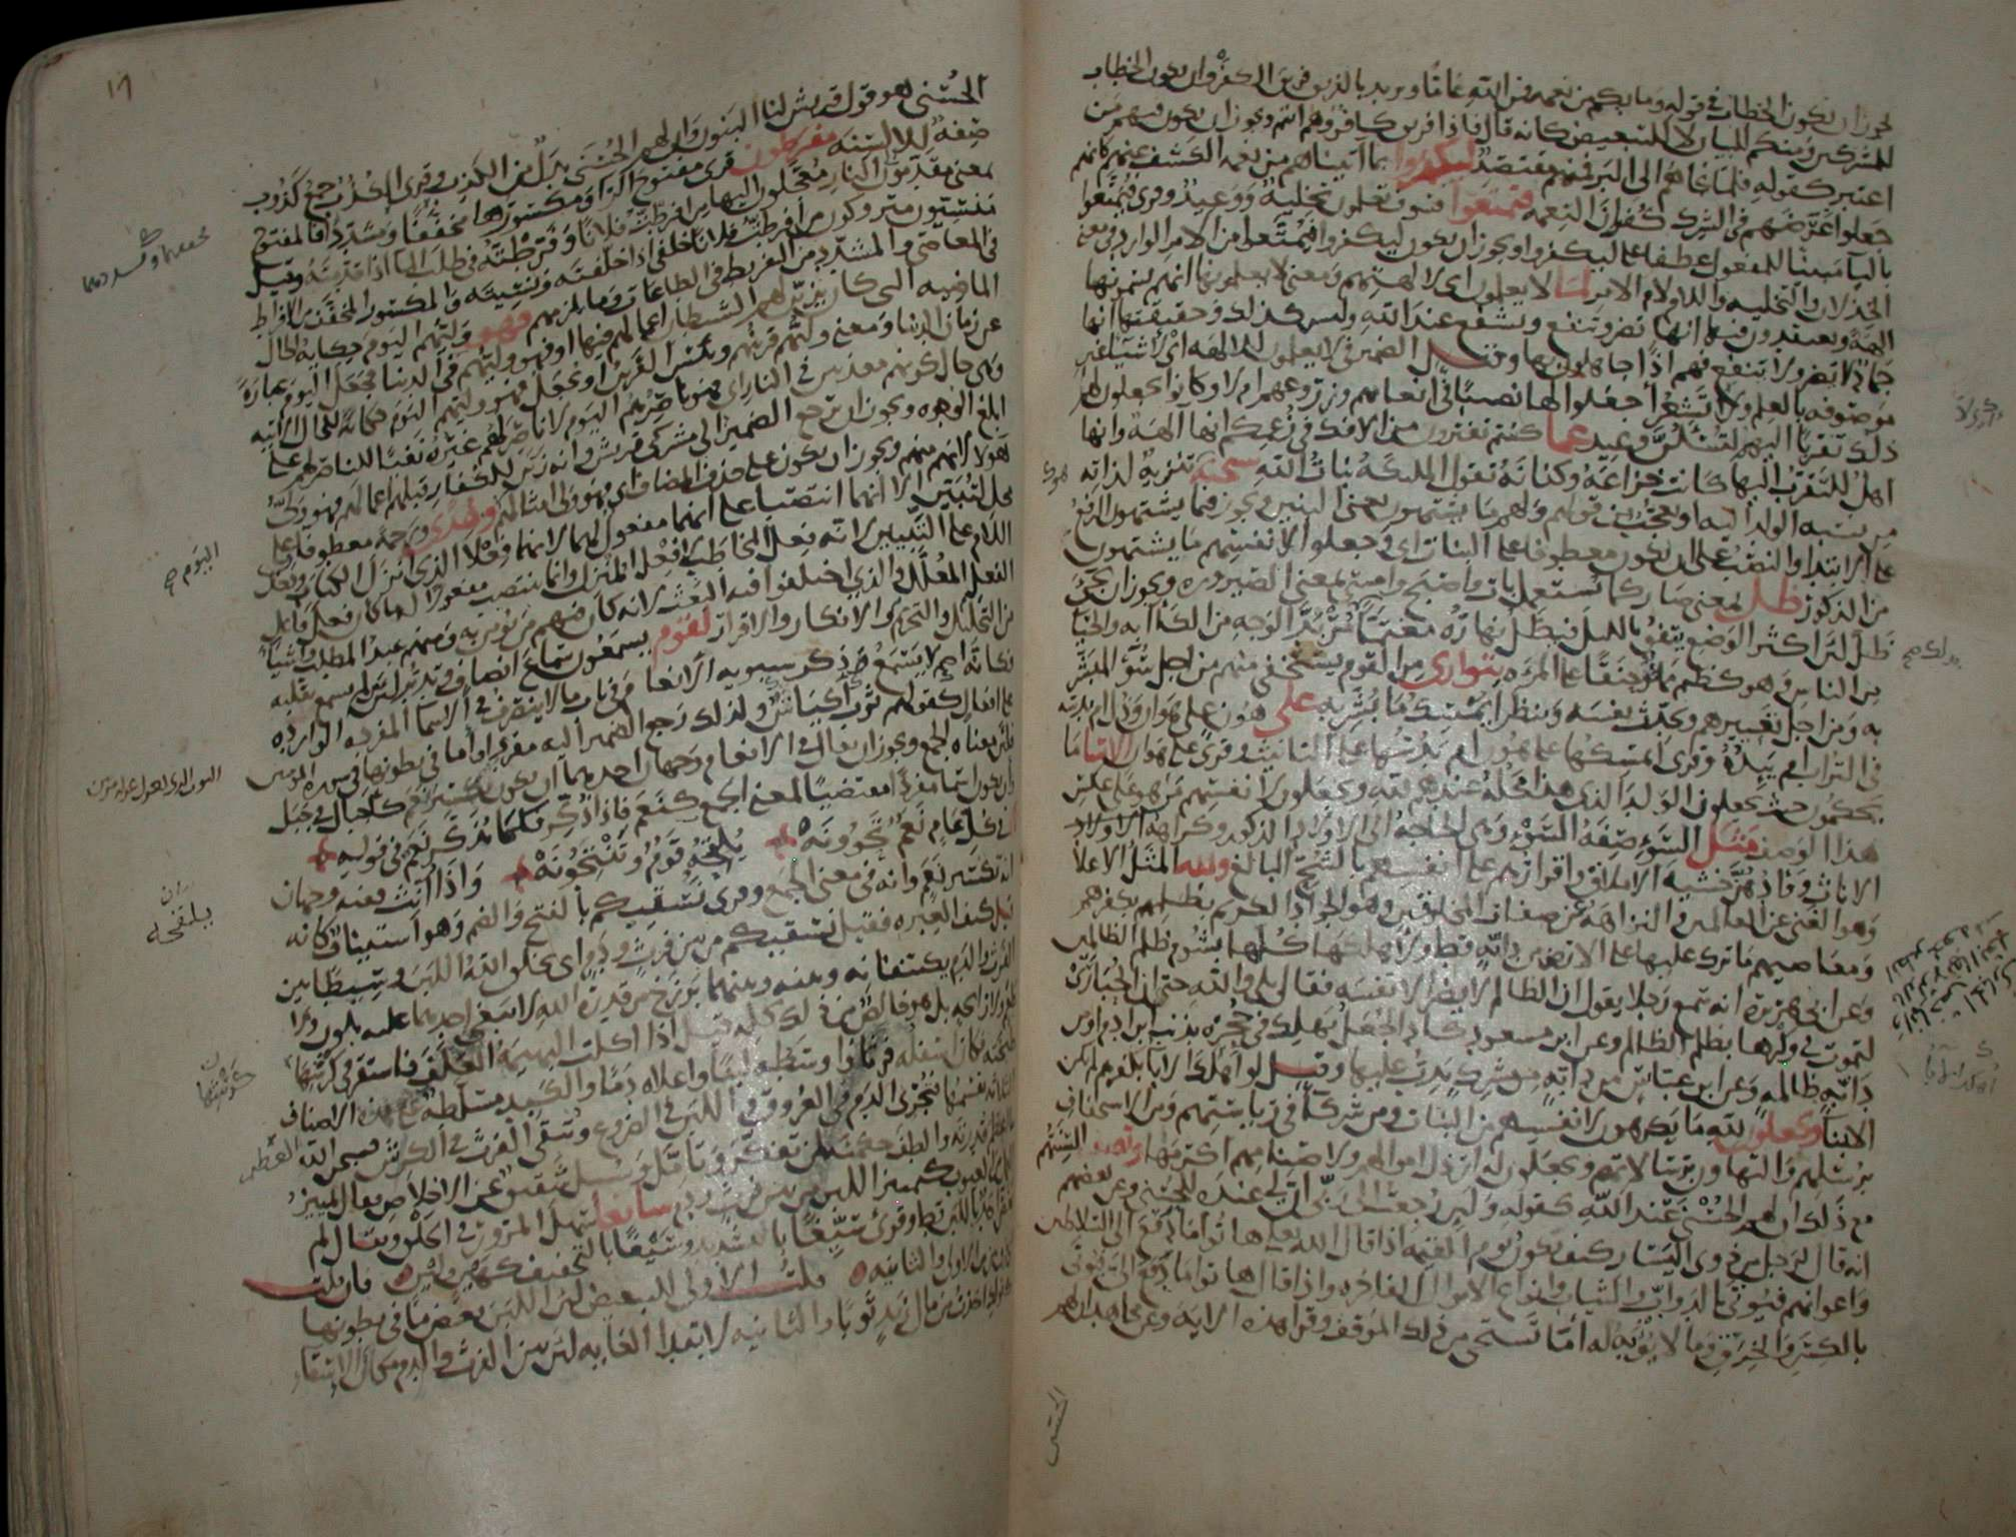 يجوز ان يكون الخطاب في قوله وما بكم من نعمة فمن الله عامًا ويريد بالذين فريق الكفرة وان يكون الخطاب
للمشركين ومنكم للبيان لا للتبعيض كانه قال فاذا فريق كافر وهم انتم ويجوز ان يكون فيهم من
اعتبر كقوله فلما نجاهم الى البر فمنهم مقتصد ليكفروا بما آتيناهم من نعمة الكشف عنهم كانهم
جعلوا غرضهم في الشرك كفران النعمة فتمتعوا فسوف تعلمون تخلية ووعيد وقرى فيمتعوا
بالياء مبنيا للمفعول عطفا على ليكفروا ويجوز ان يكون ليكفروا فيمتعوا من الامر الوارد في معنى
الخذلان والتخلية واللام لام الامر لما لا يعلمون اي لالهتهم ومعنى لا يعلمونها انهم يسمونها
الهة ويعتقدون فيها انها تضر وتنفع وتشفع عند الله وليس كذلك وحقيقتها انها
جماد لا يضر ولا ينفع فهم اذا جاهلون بها وقيل الضمير في لا يعلمون للالهة اي لاشياء غير
موصوفة بالعلم ولا تشعر اجعلوا لها نصيبا في انعامهم وزروعهم ام لا وكانوا يجعلون لهم
ذلك تقربا اليهم لتسئلن وعيد عما كنتم تفترون من الافك في زعمكم انها الهة وانها
اهل للتقرب اليها كانت خزاعة وكنانة تقول الملئكة بنات الله سبحنه تنزيه لذاته
من نسبة الولد اليه او تعجب من قولهم ولهم ما يشتهون يعنى البنين ويجوز فيما يشتهون الرفع
على الابتداء والنصب على ان يكون معطوفا على البنات اي وجعلوا لانفسهم ما يشتهون
من الذكور ظل بمعنى صار كما يستعمل بات واصبح وامسى بمعنى الصيرورة ويجوز ان يجئ
ظل لان اكثر الوضع يتفق بالليل فيظل نهاره مغتما مربد الوجه من الكآبة والحيا
من الناس وهو كظيم مملو حنقا على المرة يتوارى من القوم يستخفى منهم من اجل سوء المبشر
به ومن اجل تعييرهم ويحدث نفسه وينظر ايمسك ما بشر به على هون على هوان وذل ام يدسه
في التراب ام يئده وقرى ايمسكها على هون ام يدسها على التانيث وقرى على هوان الا ساء ما
يحكمون حيث يجعلون الولد الذي هذا محله عندهم لله ويجعلون لانفسهم من هو على عكس
هذا الوصف مثل السوء صفة السوء وهى الحاجة الى الاولاد الذكور وكراهة الاولاد
الاناث ووادهن خشية الاملاق واقرارهم على انفسهم بالشح البالغ ولله المثل الاعلا
وهو الغنى عن العالمين والنزاهة عن صفات المخلوقين وهو الجواد الكريم بظلمهم بكفرهم
ومعاصيهم ما ترك عليها على الارض من دابة قط ولاهلكها كلها بشوم ظلم الظالمين
وعن ابي هريرة انه سمع رجلا يقول ان الظالم لا يضر الا نفسه فقال بلى والله حتى ان الحبارى
لتموت في وكرها بظلم الظالم وعن ابن مسعود كاد الجعل يهلك في جحره بذنب ابن ادم او من
دابة ظالمة وعن ابن عباس من دابة من مشرك يدب عليها وقيل لو اهلك الابا بكفرهم لم تكن
الابنا ويجعلون لله ما يكرهون لانفسهم من البنات ومن شركا في رياستهم ومن الاستخفاف
برسلهم والتهاون برسالاتهم ويجعلون له ارذل اموالهم ولاصنامهم اكرمها وتصف السنتهم
مع ذلك ان لهم الحسنى عند الله كقوله ولئن رجعت الى ربي ان لي عنده للحسنى وعن بعضهم
انه قال لرجل من ذوي اليسار كيف تكون يوم القيمة اذا قال الله تعالى هاتوا ما دفع الى السلاطين
واعوانهم فيوتى بالدواب والثياب وانواع الاموال الفاخرة واذا قال هاتوا ما دفع الى فيوتى
بالكسر والخرق وما لا يؤبه له اما تستحى من ذلك الموقف وقرا هذه الاية وعن مجاهد ان لهم
الحسنى
الحسنى هو قول قريش لنا البنون وان لهم الحسنى بدل من الكذب وقرى الكذب جمع كذوب
صفة للالسنة مفرطون قرى مفتوح الرا ومكسورها مخففا ومشددا فالمفتوح
بمعنى مقدمون الى النار معجلون اليها من افرطت فلانا وفرطته في طلب الما اذا قدمته وقيل
منسيون متروكون من افرطت فلانا خلفى اذا خلفته ونسيته والمكسور المخفف من الافراط
في المعاصي والمشدد من التفريط في الطاعات وما يلزمهم فهو وليهم اليوم حكاية الحال
الماضية التى كان يزين لهم الشيطان اعمالهم فيها او فهو وليهم في الدنيا فجعل اليوم عبارة
عن زمان الدنيا ومعنى وليهم قرينهم وبئس القرين او يجعل فهو وليهم اليوم حكاية للحال الاتية
وهى حال كونهم معذبين في النار اي فهو ناصرهم اليوم لا ناصر لهم غيره نفيا للناصر لهم على
ابلغ الوجوه ويجوز ان يرجع الضمير الى مشركى قريش وانه زين للكفار قبلهم اعمالهم فهو ولى
هولا لانهم منهم ويجوز ان يكون على حذف المضاف اي فهو ولى امثالهم وهدى ورحمة معطوفان على
محل لتبين الا انهما انتصبا على انهما مفعول لهما لانهما فعلا الذي انزل الكتاب ودخل
اللام على لتبين لانه فعل المخاطب لا فعل المنزل وانما ينتصب مفعولا له ما كان فعل فاعل
الفعل المعلل والذي اختلفوا فيه البعث لانه كان فيهم من يومن به ومنهم عبد المطلب واشيا
من التحليل والتحريم والانكار والاقرار لقوم يسمعون سماع انصاف وتدبر لان من لم يسمع بقلبه
فكانه اصم لا يسمع ذكر سيبويه الانعام في باب ما لا ينصرف في الاسما المفردة الواردة
على افعال كقولهم ثوب اكياش ولذلك رجع الضمير اليه مفردا واما في بطونها في سورة المومنين
فلان معناه الجمع ويجوز ان يقال في الانعام وجهان احدهما ان يكون تكسير نعم كاجبال في جبل
وان يكون اسما مفردا مقتضيا لمعنى الجمع كنعم فاذا ذكر فكما يذكر نعم في قوله
في كل عام نعم تحوونه يلقحه قوم وتنتجونه واذا انث ففيه وجهان
انه تكسير نعم وانه في معنى الجمع وقرى نسقيكم بالفتح والضم وهو استيناف كانه
قيل كيف العبرة فقيل نسقيكم من بين فرث ودم اي يخلق الله اللبن وسيطا بين
الفرث والدم يكتنفانه وبينه وبينهما برزخ من قدرة الله لا يبغى احدهما عليه بلون ولا
طعم ولا رائحة بل هو خالص من ذلك كله قيل اذا اكلت البهيمة العلف فاستقر في كرشها
طبخته فكان اسفله فرثا واوسطه لبنا واعلاه دما والكبد مسلطة على هذه الاصناف
الثلاثة تقسمها فتجرى الدم في العروق واللبن في الضروع وتبقى الفرث في الكرش فسبحان الله
ما اعظم قدرته والطف حكمته لمن تفكر وتامل وسئل شقيق عن الاخلاص فقال تمييز
العمل من العيوب كتمييز اللبن من بين فرث ودم سايغا سهل المرور في الحلق ويقال لم
يغص احد باللبن قط وقرى سيغا بالتشديد وسيغا بالتخفيف كهين ولين فان قلت
اي فرق بين من الاولى والثانية قلت الاولى للتبعيض لان اللبن بعض ما في بطونها
كقولك اخذت من مال زيد ثوبا والثانية لابتداء الغاية لان بين الفرث والدم مكان الاسقاء
اليوم صح
العظيم